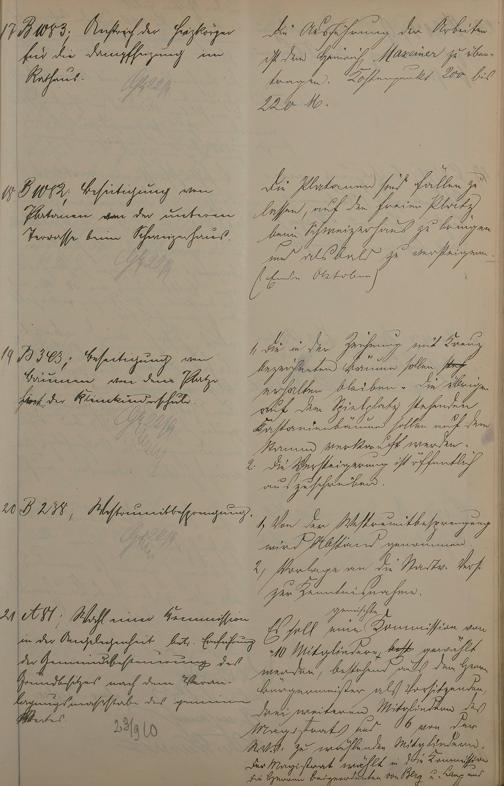 17 B 1083; Anstrich der Heizkörper
für die Dampfheizung im
Rathaus.
Die Ausführung der Arbeiten
ist dem Heinrich Maxeiner zu über-
tragen. Kostenpunkt 200 bis
220 M.
18 B 1082; Beseitigung von
Platanen von der unteren
Terrasse beim Schweizerhaus.
Die Platanen sind fällen zu
lassen, auf den freien Platz
beim Schweizerhaus zu bringen
und alsbald zu versteigern.
(Ende Oktober)
19 B 363; Beseitigung von
Bäumen von dem Platze
der Kleinkinderschule
1, Die in der Zeichnung mit Kreuz
bezeichneten Bäume sollen
erhalten bleiben. Die übrigen
auf dem Spielplatz stehenden
Kastanienbäume sollen auf dem
Stamm verkauft werden.
2. Die Versteigerung ist öffentlich
auszuschreiben.
20 B 238, Westrumitbesprengung.
1, Von der Westrumitbesprengung
wird Abstand genommen.
2, Vorlage an die Stadtv. Vers.
zur Kenntnisnahme.
21 A 81; Wahl einer Kommission
in der Angelegenheit betr. Einführung
der Gemeindebesteuerung des
Grundbesitzes nach dem Veran-
lagungsmaßstabe des gemeinen
Wertes
23/9 10
gemischte
Es soll eine Kommission von
10 Mitgliedern gewählt
werden, bestehend aus dem Herrn
Bürgermeister als Vorsitzenden,
drei weiteren Mitgliedern des
Magistrats und 6 von der
St.V. zu wählenden Mitgliedern.
Der Magistrat wählt in die Kommission
die Herren Beigeordneten von Berg u.